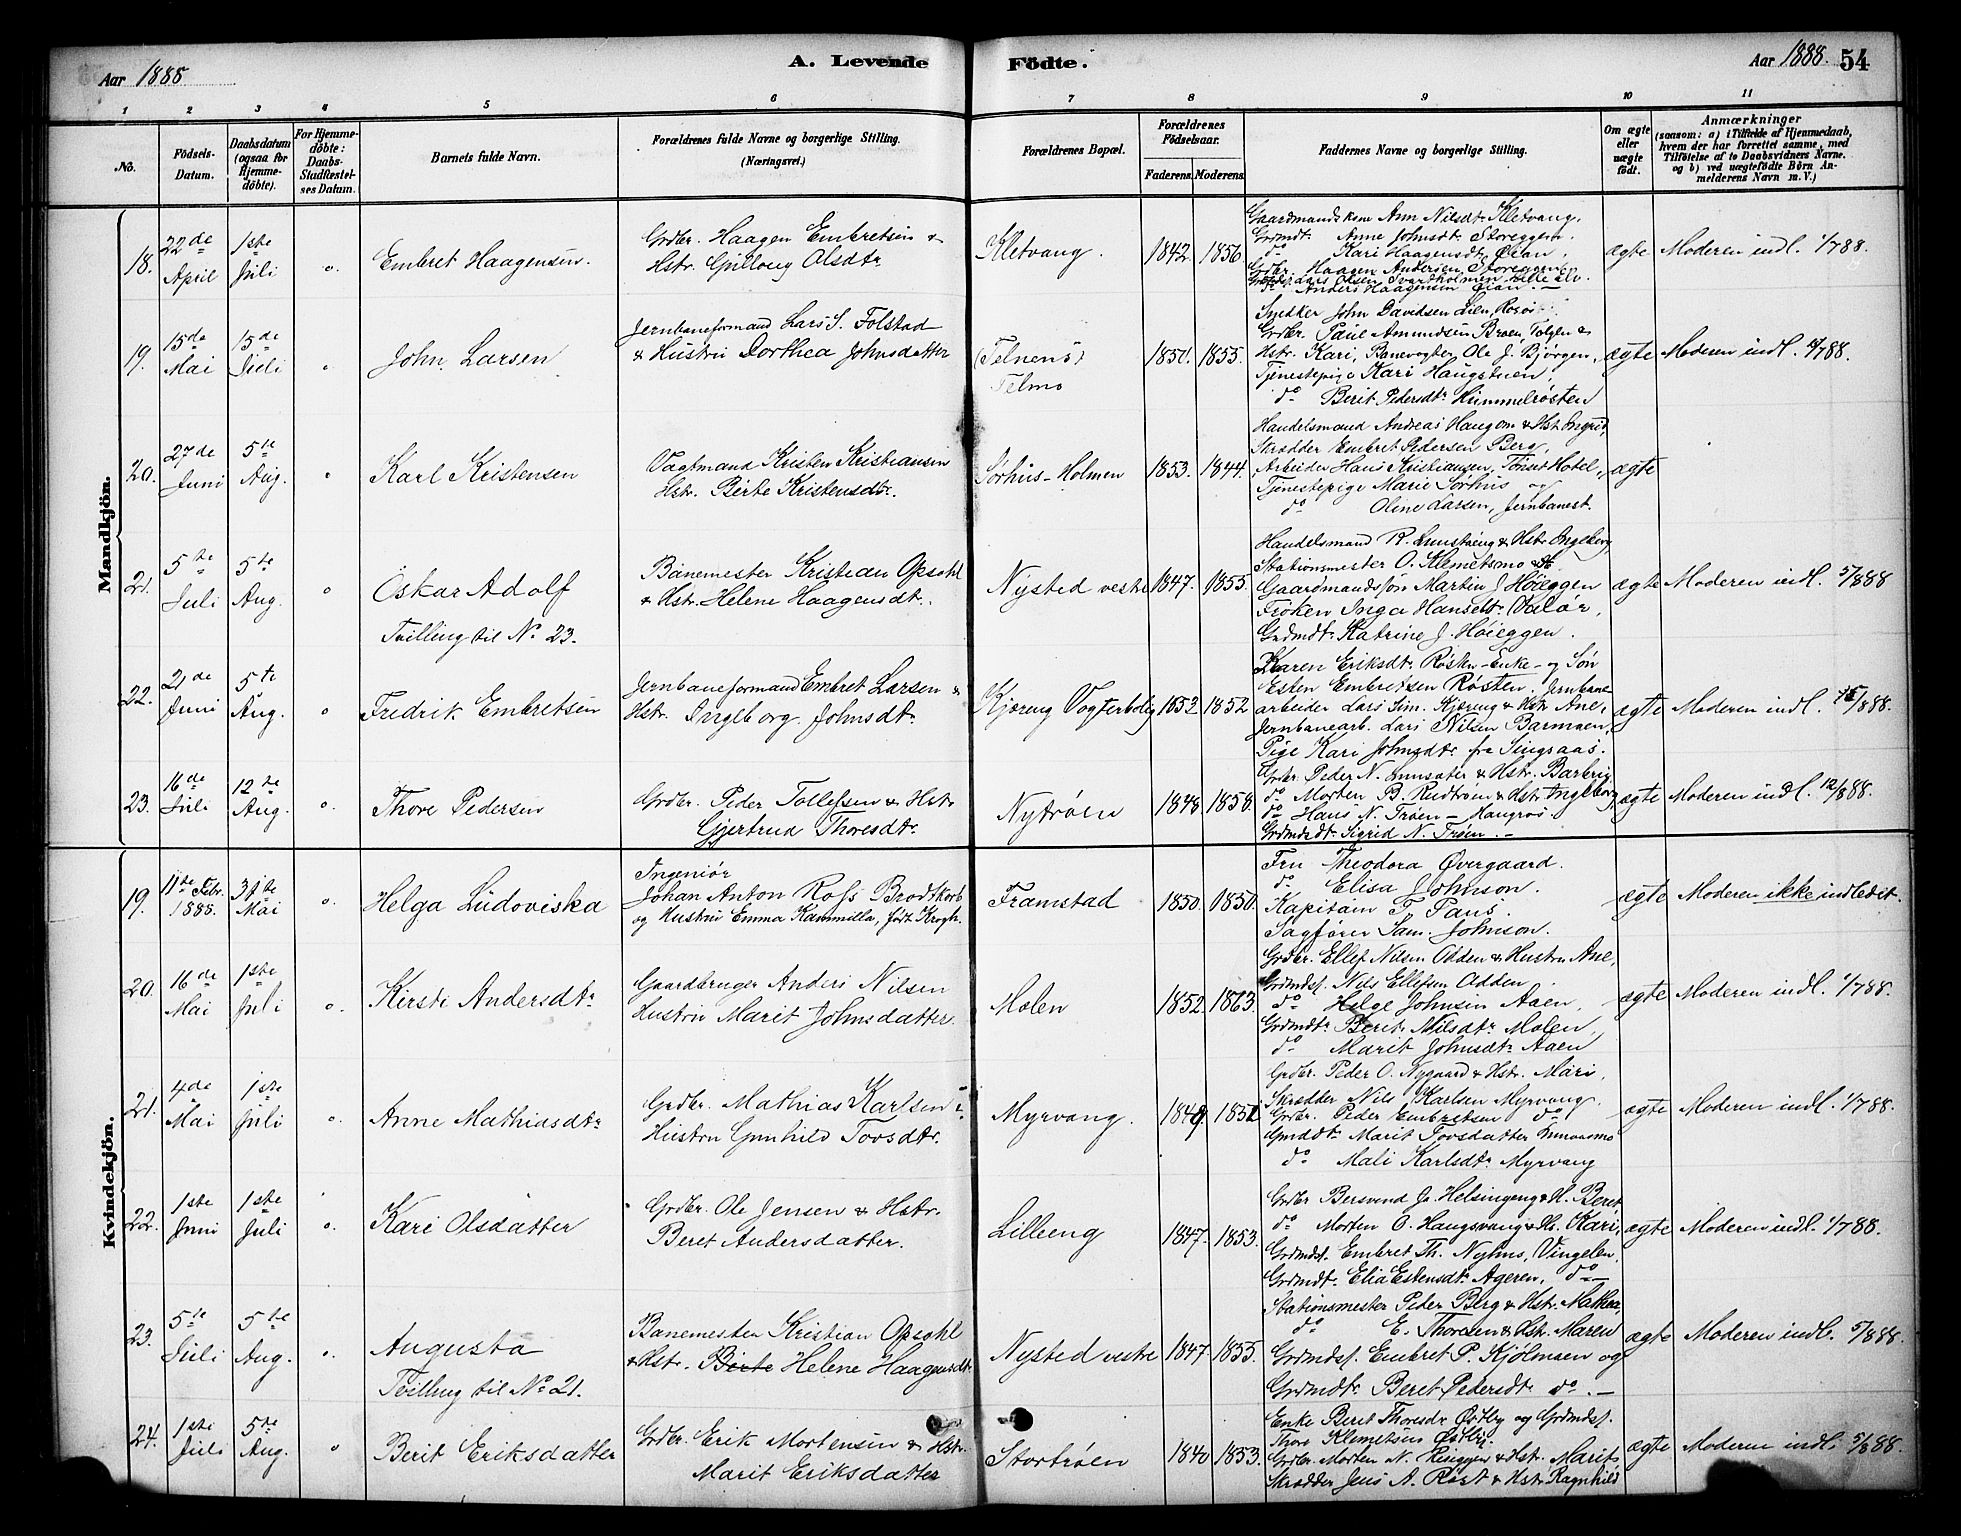 Aar 1888
A. Levende Födte.
Aar 1888. 54
1 2 3 4 5 6 7 8 9 10 11
No.
Födsels-Datum.
Daabsdatum (ogsaa for Hjemme-döbte).
For Hjemme-döbte: Daabs-Stadfæstel-ses Datum.
Barnets fulde Navn.
Forældrenes fulde Navne og borgerlige Stilling. (Næringsvei.)
Forældrenes Bopæl.
Forældrenes Födselsaar.
Faderens. Moderens.
Faddernes Navne og borgerlige Stilling.
Om ægte eller uægte födt.
Anmærkninger
(saasom: a) i Tilfælde af Hjemmedaab, hvem der har forrettet samme, med Tilföielse af to Daabsvidners Navne. og b) ved uægtefödte Börn Anmelderens Navn m. V.)
Mandkjön.
18. 22de April 1ste Juli o. Embret Haagensen.
Grdbr. Haagen Embretsen &
Hstr. Gulloug Olsdtr
Kletvang. 1842. 1856.
Gaardmandskone Ann Nilsdtr Kletvang.
Grdmdt. Anne Johnsdt. Storeggen.
do Kari Haagensdt. Øian,
Grdbr. Haagen Andersen Storeggen
do Anders Haagensen Øian
ægte Moderen indl. 1/7 88.
19. 15de Mai 15de Juli John Larsen
Jernbaneformand Lars S. Folstad
& Hustru Dorthea Johnsdatter
(Telnenö)
Telmo
1851. 1855.
Snedker John Davidsen Lien, Røros
Grdbr. Paul Amundsen Broen, Tolgen &
Hstr. Kari, Banevogter Ole J. Bjørgen,
Tjenestepige Kari Haugstuen,
do Berit Pedersdtr Hummelrøsten
ægte Moderen indl. 15/7 88.
20. 27de Juni 5te Aug. Karl Kristensen
Vagtmand Kristen Kristiansen
Hstr. Birte Kristensdtr.
Sørhus-Holmen 1853. 1844.
Handelsmand Andreas Haugom & Hst. Ingrid,
Skrædder Embret Pedersen Berg,
Arbeider Hans Kristiansen, Tönset Hotel,
Tjenestepige Marie Sørhus og
do Oline Larsen, Jernbanest.
ægte
21. 5te Juli 5te Aug. o Oskar Adolf
Tvilling til No 23.
Banemester Kristian Opsahl
& Hstr. Helene Haagensdt.
Nysted vestre 1847. 1855.
Stationsmester O. Klemetsmo
Gaardmandssøn Martin J Høieggen
Frøken Inga Hansdtr.
Grdmdt. Katrine J. Høieggen.
ægte Moderen indl. 5/8 88
22. 21de Juni 5te Aug. o Fredrik Embretsen
Jernbaneformand Embret Larsen &
Hstr. Ingeborg Johnsdt.
Kjøreng Vogterbolig 1852 1852
Karen Eriksdtr Røsten - Enke - og Søn
Esten Embretsen Røsten. Jernbane
arbeider Lars Sim. Kjøreng & Hstr Ane,
Jernbanearb. Lars Nilsen Barmoen,
Pige Kari Johnsdtr fra Singsaas.
ægte Moderen indl. 5/8 88.
23. 16de Juli 12te Aug. o. Thore Pedersen
Grdbr. Peder Tollefsen & Hstr
Gjertrud Thoresdtr.
Nytrøen 1848 1858.
Grdbr. Peder N. & Hstr. Barbrie
do Morten B. Rudtrøen & Hstr. Ingeborg,
do Hans N. Trøen
Grdmdt. Sigrid N. Trøen. -
ægte Moderen indl. 12/8 88.
Kvindekjön.
19. 11te Febr. 1888. 31te Mai o. Helga Ludoviska
Ingeniør
Johan Anton Ross Brodtkorb
og Hustru Emma Kammilla, født Krogh.
Framstad 1850. 1850.
Fru Theodora Øvergaard.
do Elisa Johnson.
Kapitain T. Paus.
Sagfører Sam. Johnson.
ægte Moderen ikke indledet.
20. 16de Mai 1ste Juli o. Kirsti Andersdtr
Gaardbruger Anders Nilsen
Hustru Marit Johnsdatter.
Molen 1852. 1863.
Grdbr. Ellef Nilsen Odden & Hustru Ane,
Grdmdss. Nils Ellefsen Odden.
do Helge Johnsen Aaen,
Grdmdtr Beret Nilsdtr Molen,
do Marit Johnsdtr Aaen
ægte Moderen indl. 1/7 88.
21. 4de Mai 1ste Juli o. Anne Mathiasdtr
Grdbr. Mathias Karlsen &
Hustru Gunhild Tovsdtr.
Myrvang. 1849. 1852
Grdbr. Peder O. Nygaard & Hstr. Mari,
Skrædder Nils Karlsen Myrvang,
Grdbr. Peder Embretsen do
Grmddtr Marit Tovsdatter
do Mali Karlsdtr Myrvang
ægte Moderen indl. 1/7 88.
22. 1ste Juni 1ste Juli o. Kari Olsdatter
Grdbr. Ole Jensen & Hstr.
Beret Andersdatter.
Lilleeng 1847. 1853.
Grdbr Bersvend J. Helsingeng & H. Beret,
do Morten O. Haugsvang & H. Kari,
Grdmdss. Embret Th. Nyhus, Vingelen,
Grdmdtr. Elia Estensdtr Ageren, do -
ægte Moderen indl. 1/7 88.
23. 5te Juli 5te Aug. o. Augusta
Tvilling til No 21.
Banemester Kristian Opsahl
& Hstr. Birte Helene Haagensdt.
Nysted vestre 1847. 1855.
Stationsmester Peder Berg & Hstr. Mathea,
do E. Thoresen & Hstr. Maren
Grdmdss. Embret P. Kjølmoen og
Grdmdtr Beret Pedersdtr do. -
ægte Moderen indl. 5/8 88.
24. 1ste Juli 5te Aug. o Berit Eriksdatter
Grdbr. Erik Mortensen & Hstr.
Marit Eriksdatter
Stortrøen 1840 1853.
Enke Beret Thoresdtr Østby og Grdmdss.
Thore Klemetsen Østby.
Grdbr. Morten N. & Hstr. Marit,
Skrædder Jens A. Røst & Hstr. Ragnhild
ægte Moderen indl. 5/8 88.